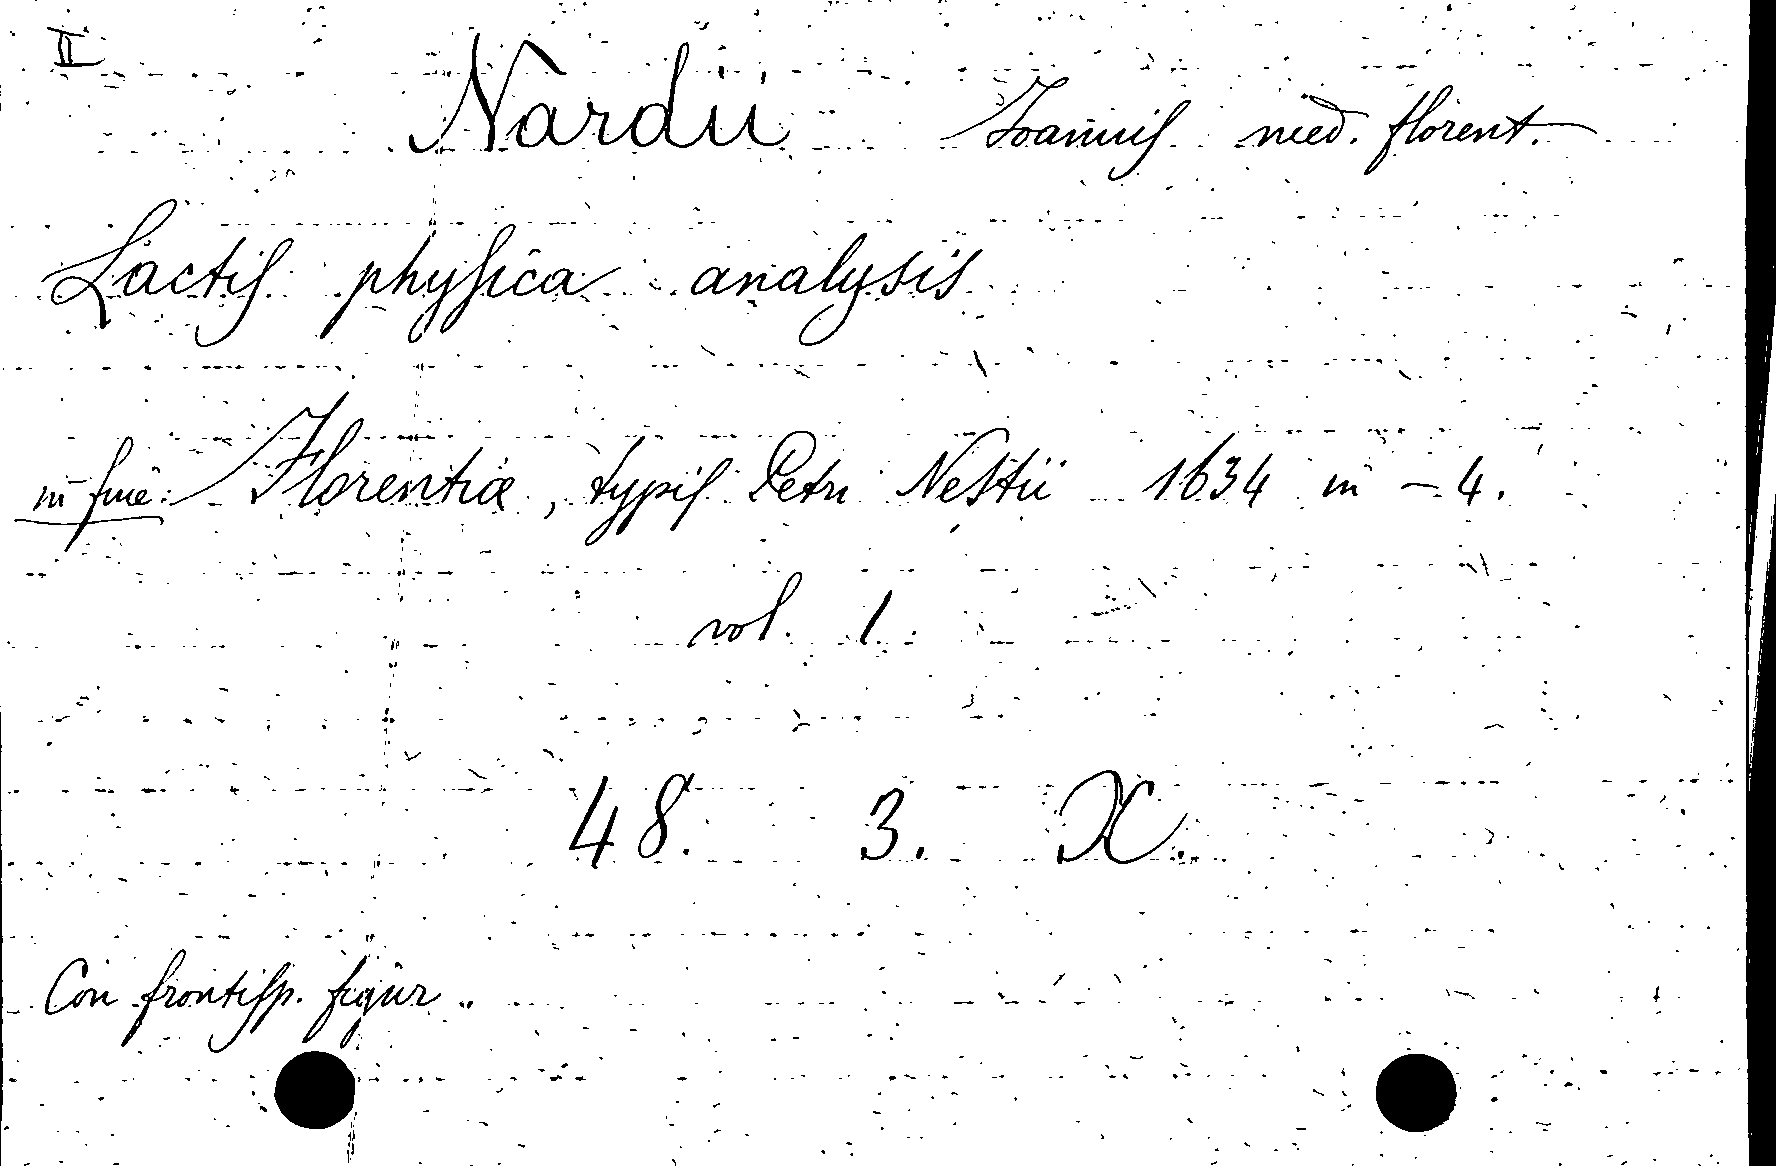 II
Nardii Joannis med. florent.
Lactis physica analysis
in fine: Florentiæ, typis Petri Nestii 1634 in-4.
vol. 1.
48. 3. X.
Con frontisp. figur.